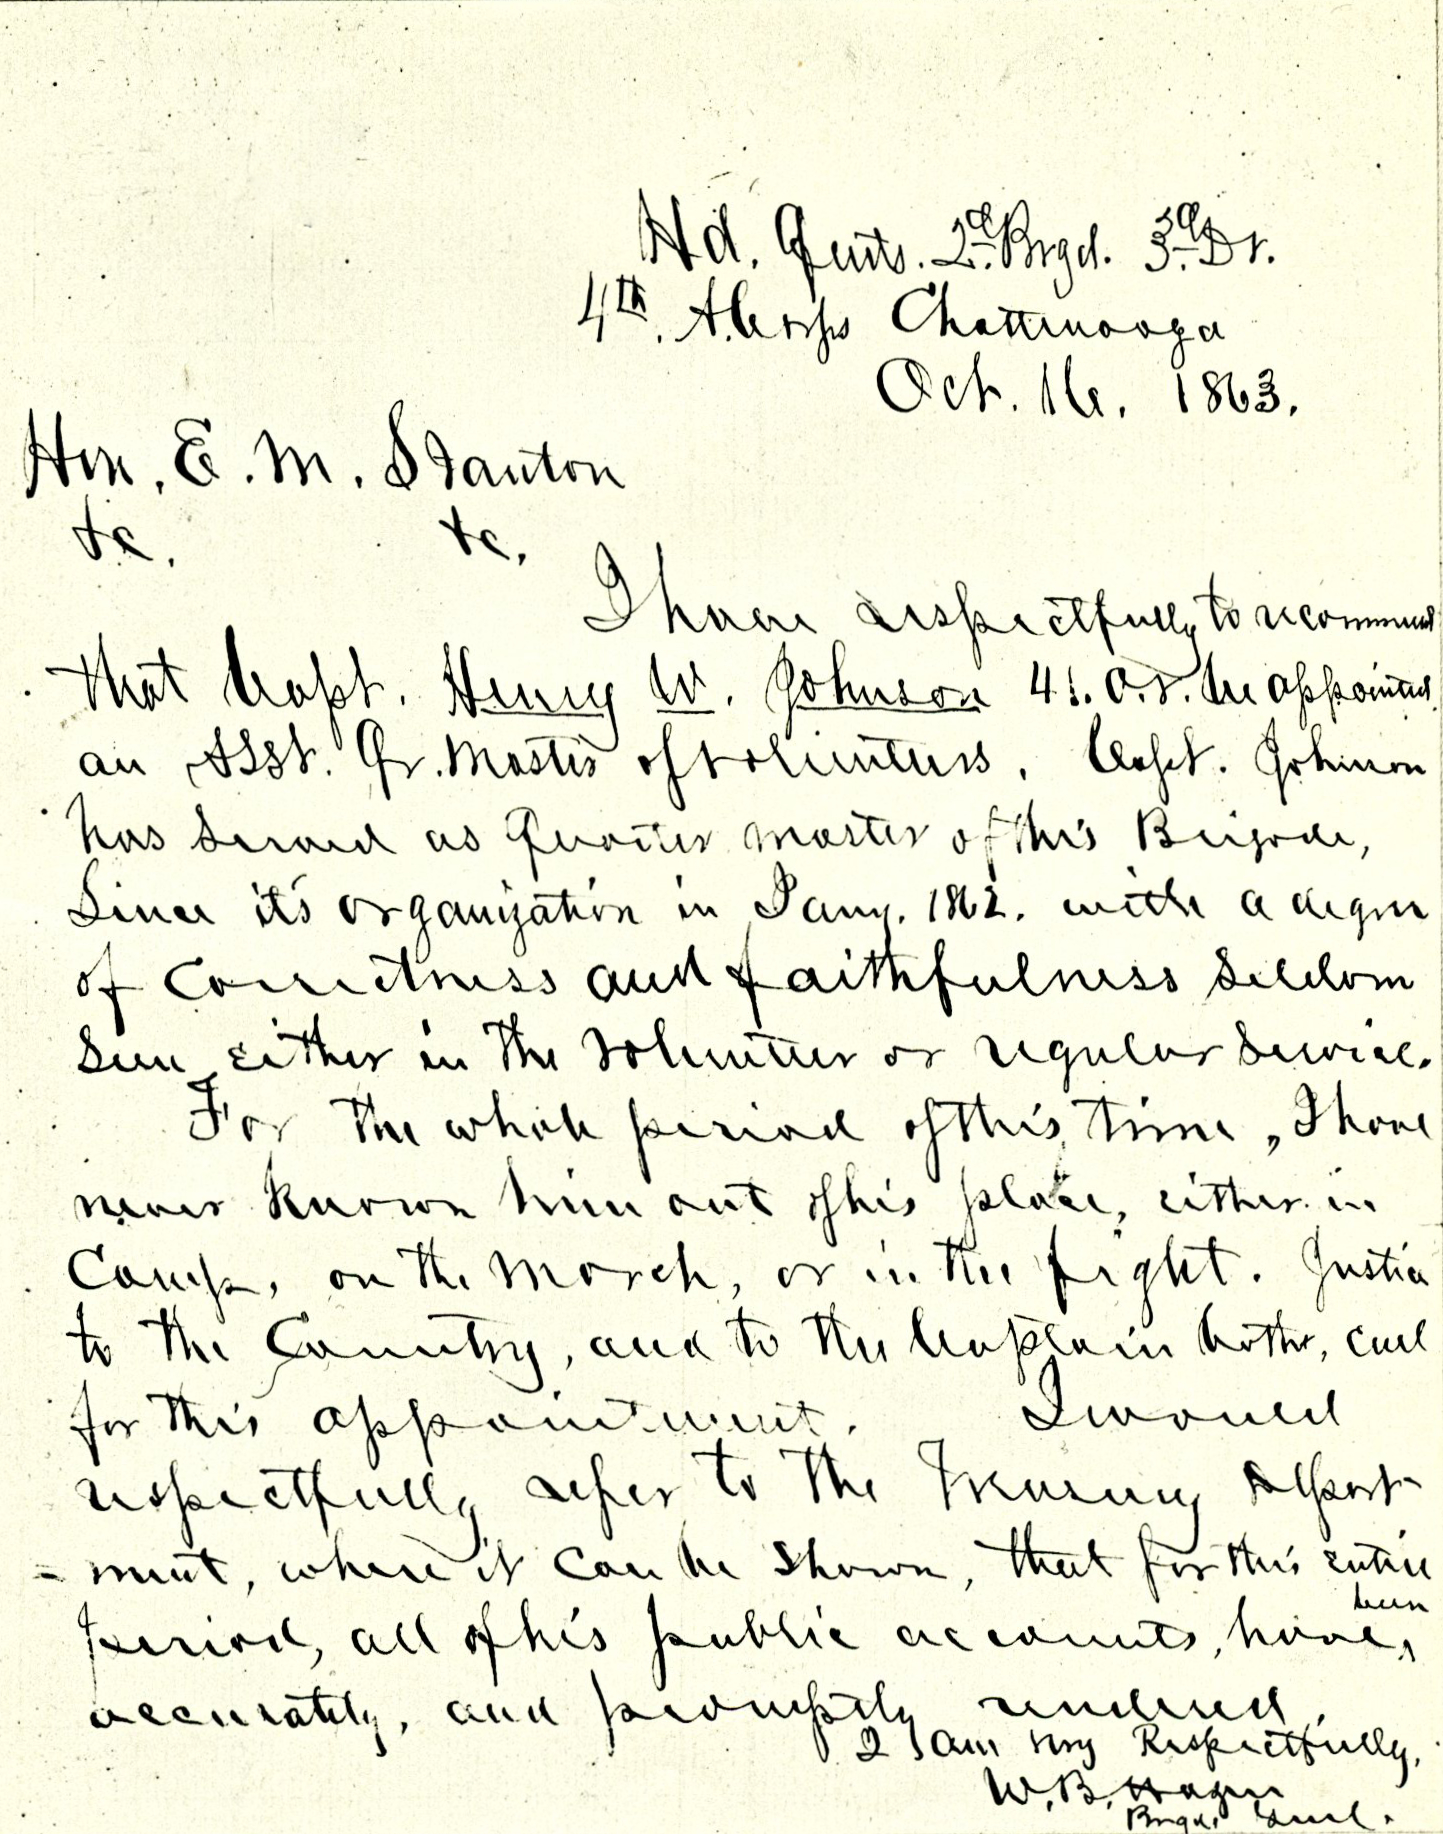 Hd. Qurts. 2d. Brgd. 3d. Dv.
4th. A. Corps Chattanooga
Oct. 16. 1863.
Hon. E. M. Stanton
&c. &c.
I have respectfully to recommend
that Capt. Henry W. Johnson 41. O.V. be appointed
an Asst. Qr. Master of Volunteers. Capt. Johnson
has served as Quarter master of this Brigade,
Since it's organization in Jany. 1862. with a degree
of correctness and faithfulness seldom
seen either in the volunteer or regular service.
For the whole period of this time, I have
never known him out of his place, either in
Camp, on the march, or in the fight. Justice
to the Country, and to the Captain both, call
for this appointment. I would
respectfully refer to the Treasury Depart-
=ment, where it can be shown, that for this entire
been
period, all of his public accounts, have,
accurately, and promptly rendered.
I am Very Respectfully,
W. B. Hazen
Brgd. Genl.